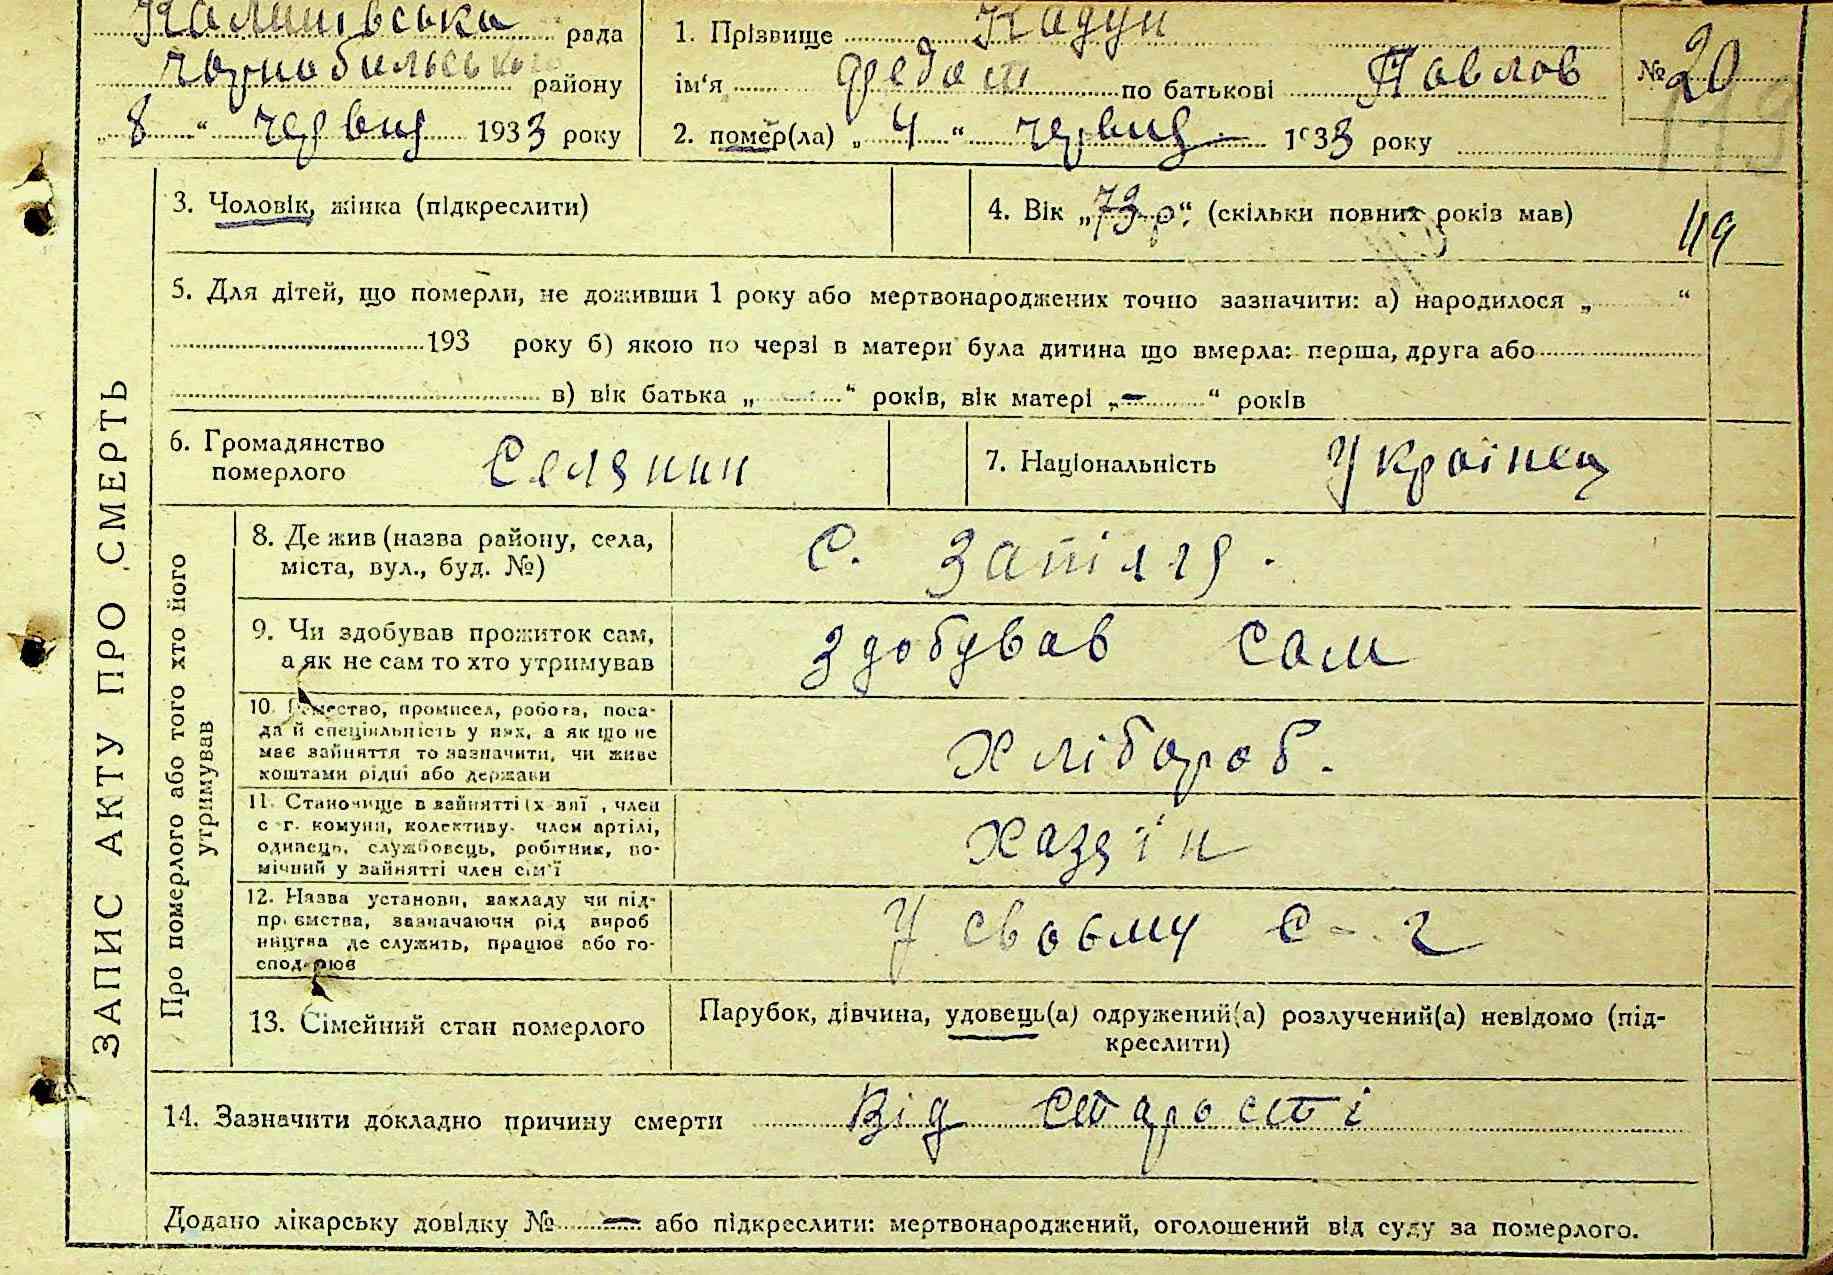 рада
району
„8“ червня 1933 року
1. Прізвище Кадун
ім‘я Федот по батькові Павлов
2. помер(ла) „4“ червня 1933 року
№ 20
119
ЗАПИС АКТУ ПРО СМЕРТЬ
3. Чоловік, жінка (підкреслити)
4. Вік „73 р“. (скільки повних років мав)
119
5. Для дітей, що померли, не доживши 1 року або мертвонароджених точно зазначити: а) народилося „ “
193 року б) якою по черзі в матери була дитина що вмерла: перша, друга або
в) вік батька „ “ років, вік матері „—“ років
6. Громадянство
померлого
Селянин
7. Національність Українец
Про померлого або того хто його
утримував
8. Де жив (назва району, села,
міста, вул., буд. №)
С. Запілля.
9. Чи здобував прожиток сам,
а як не сам то хто утримував
Здобував сам
10. Ремество, промисел, робота, поса-
да й спеціяльність у них, а як що не
має зайняття то зазначити, чи живе
коштами рідні або держави
Хлібороб.
11. Становище в зайнятті , член
с-г. комуни, колективу, член артілі,
одинець, службовець, робітник, по-
мічний у зайнятті член сім‘ї
Хазяїн
12. Назва установи, закладу чи під-
приємства, зазначаючи рід вироб
ництва де служить, працює або го-
сподарює
У своєму с-г
13. Сімейний стан померлого
Парубок, дівчина, удовець(а) одружений(а) розлучений(а) невідомо (під-
креслити)
14. Зазначити докладно причину смерти Від старости
Додано лікарську довідку № — або підкреслити: мертвонароджений, оголошений від суду за померлого.